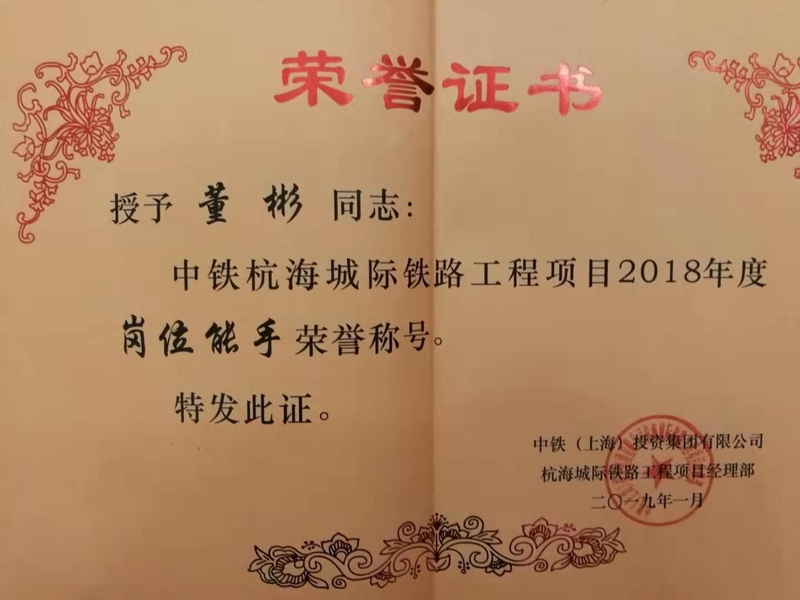 荣誉证书
授予 董彬 同志：
中铁杭海城际铁路工程项目2018年度
岗位能手荣誉称号。
特发此证。
中铁（上海）投资集团有限公司
杭海城际铁路工程项目经理部
二〇一九年一月